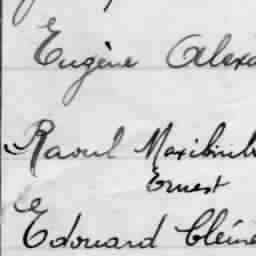 Eugène Alexa
Raoul Maxibinb
Ernest
Edouard Cléme